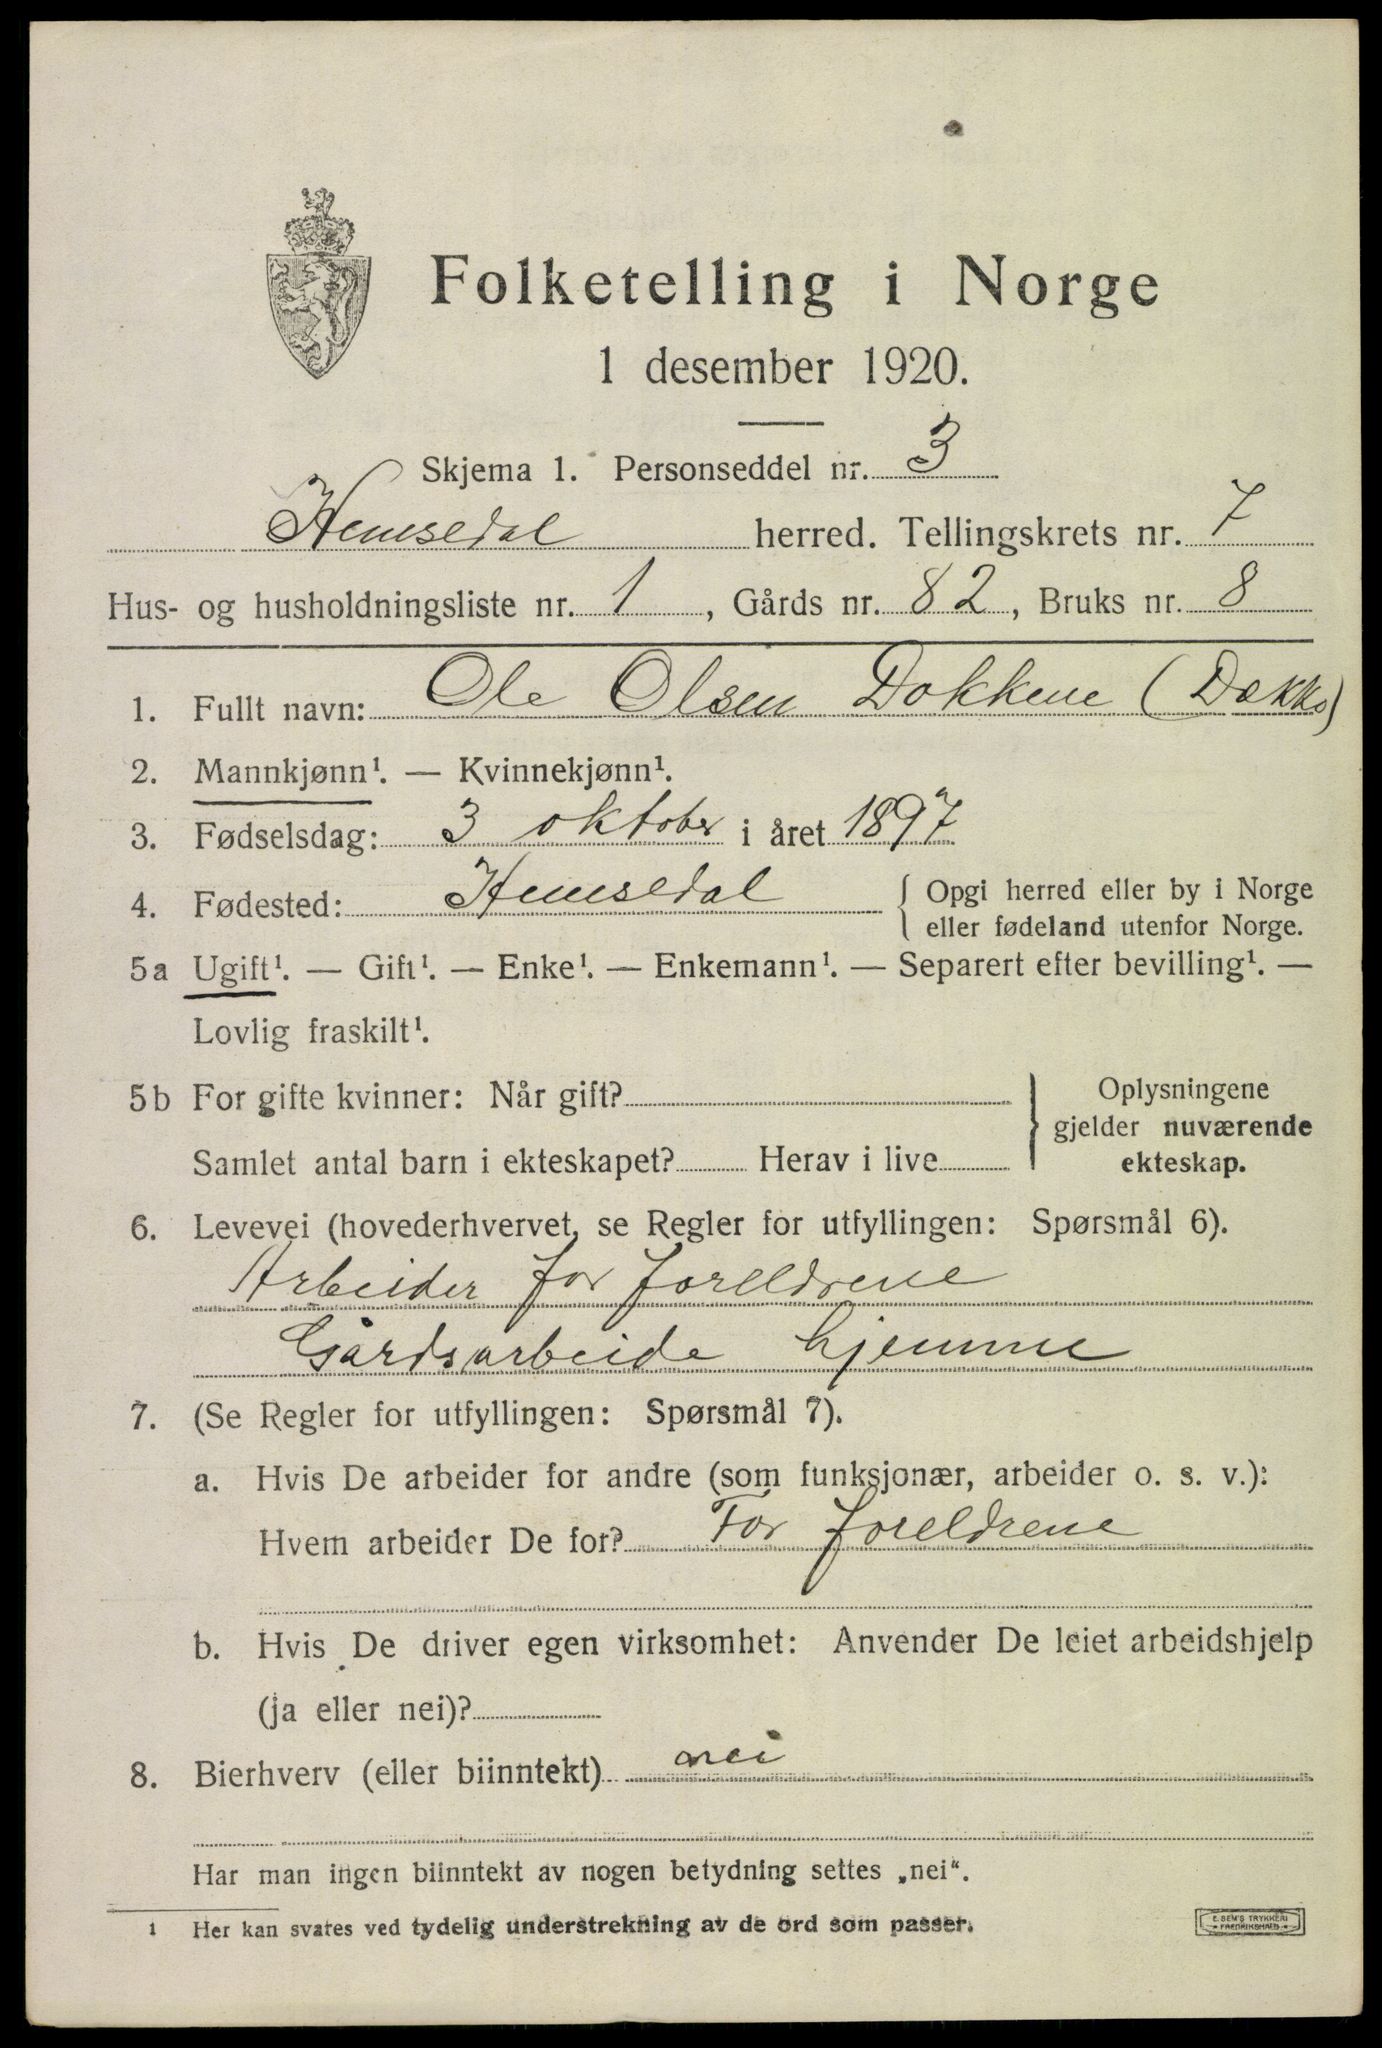 Folketelling i Norge
1 desember 1920.
Skjema 1. Personseddel nr. 3
Hemsedal herred. Tellingskrets nr. 7
Hus- og husholdningsliste nr. 1, Gårds nr. 82, Bruks nr. 8
1. Fullt navn: Ole Olsen Dokkene (Dokko)
2. Mannkjønn¹. — Kvinnekjønn¹.
3. Fødselsdag: 3 oktober i året 1897
4. Fødested: Hemsedal { Opgi herred eller by i Norge
eller fødeland utenfor Norge.
5a Ugift¹. — Gift¹. — Enke¹. — Enkemann¹. — Separert efter bevilling¹. —
Lovlig fraskilt¹.
5b For gifte kvinner: Når gift?
Samlet antal barn i ekteskapet? Herav i live
Oplysningene
gjelder nuværende
ekteskap.
6. Levevei (hovederhvervet, se Regler for utfyllingen: Spørsmål 6).
Arbeider for foreldrene
Gårdsarbeide hjemme
7. (Se Regler for utfyllingen: Spørsmål 7).
a. Hvis De arbeider for andre (som funksjonær, arbeider o. s. v.):
Hvem arbeider De for? For foreldrene
b. Hvis De driver egen virksomhet: Anvender De leiet arbeidshjelp
(ja eller nei)?
8. Bierhverv (eller biinntekt) nei
Har man ingen biinntekt av nogen betydning settes „nei“.
1 Her kan svares ved tydelig understrekning av de ord som passer.
E. SEM'S TRYKKERI
FREDRIKSHALD